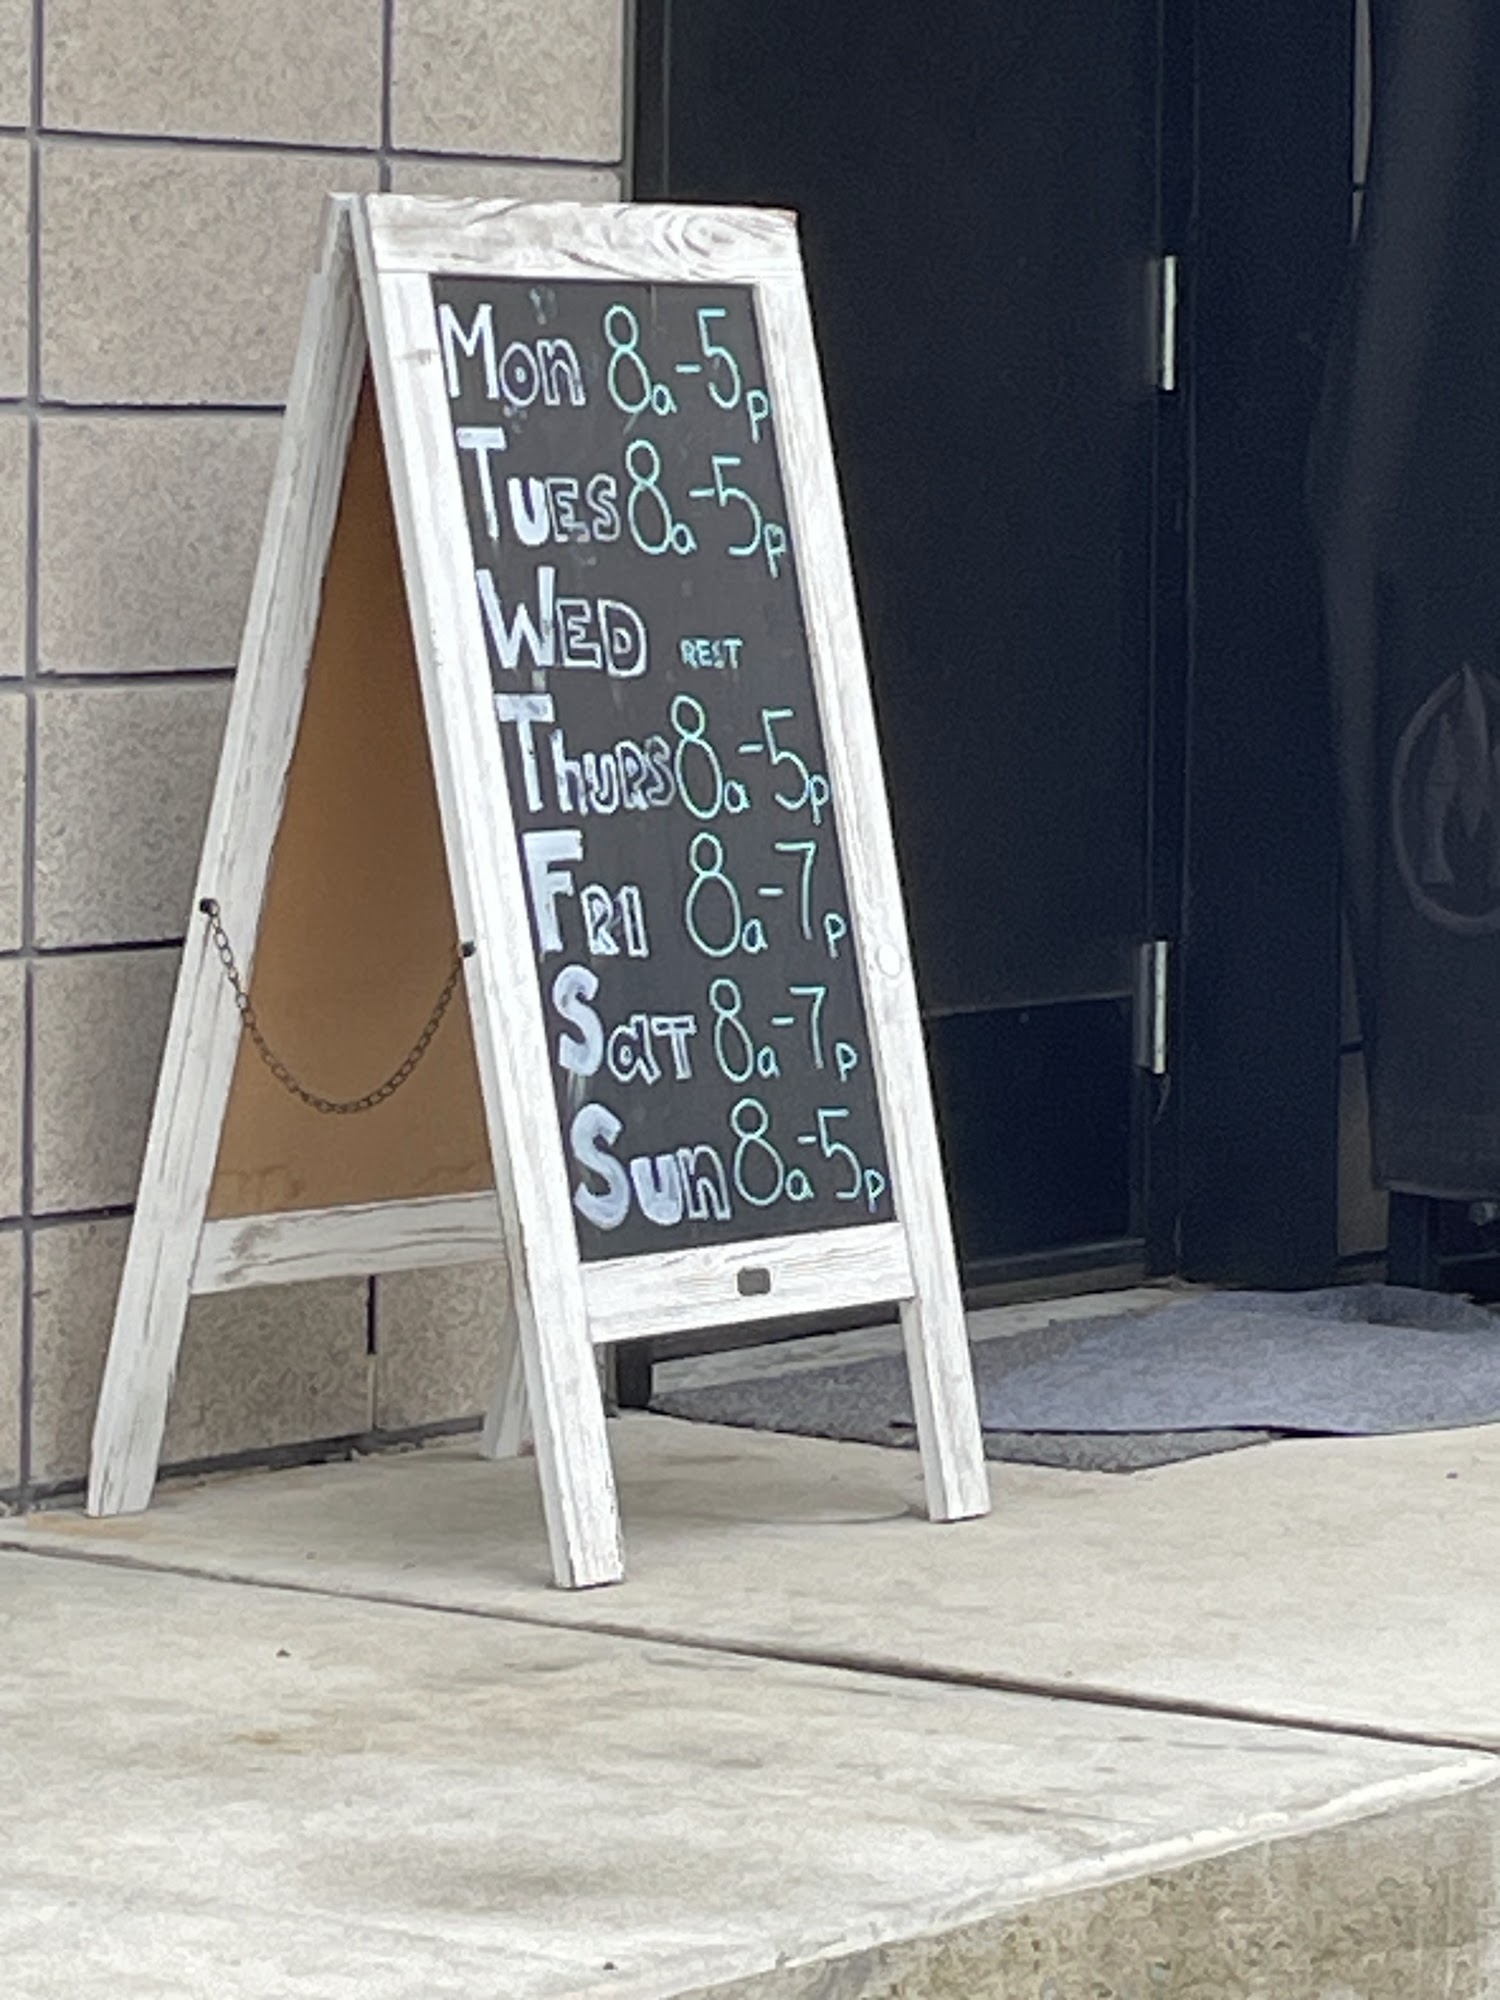 Mon 8a-5p
TUES 8a-5p
WED REST
ThURS 8a-5p
FRI 8a-7p
SaT 8a-7p
Sun 8a-5p